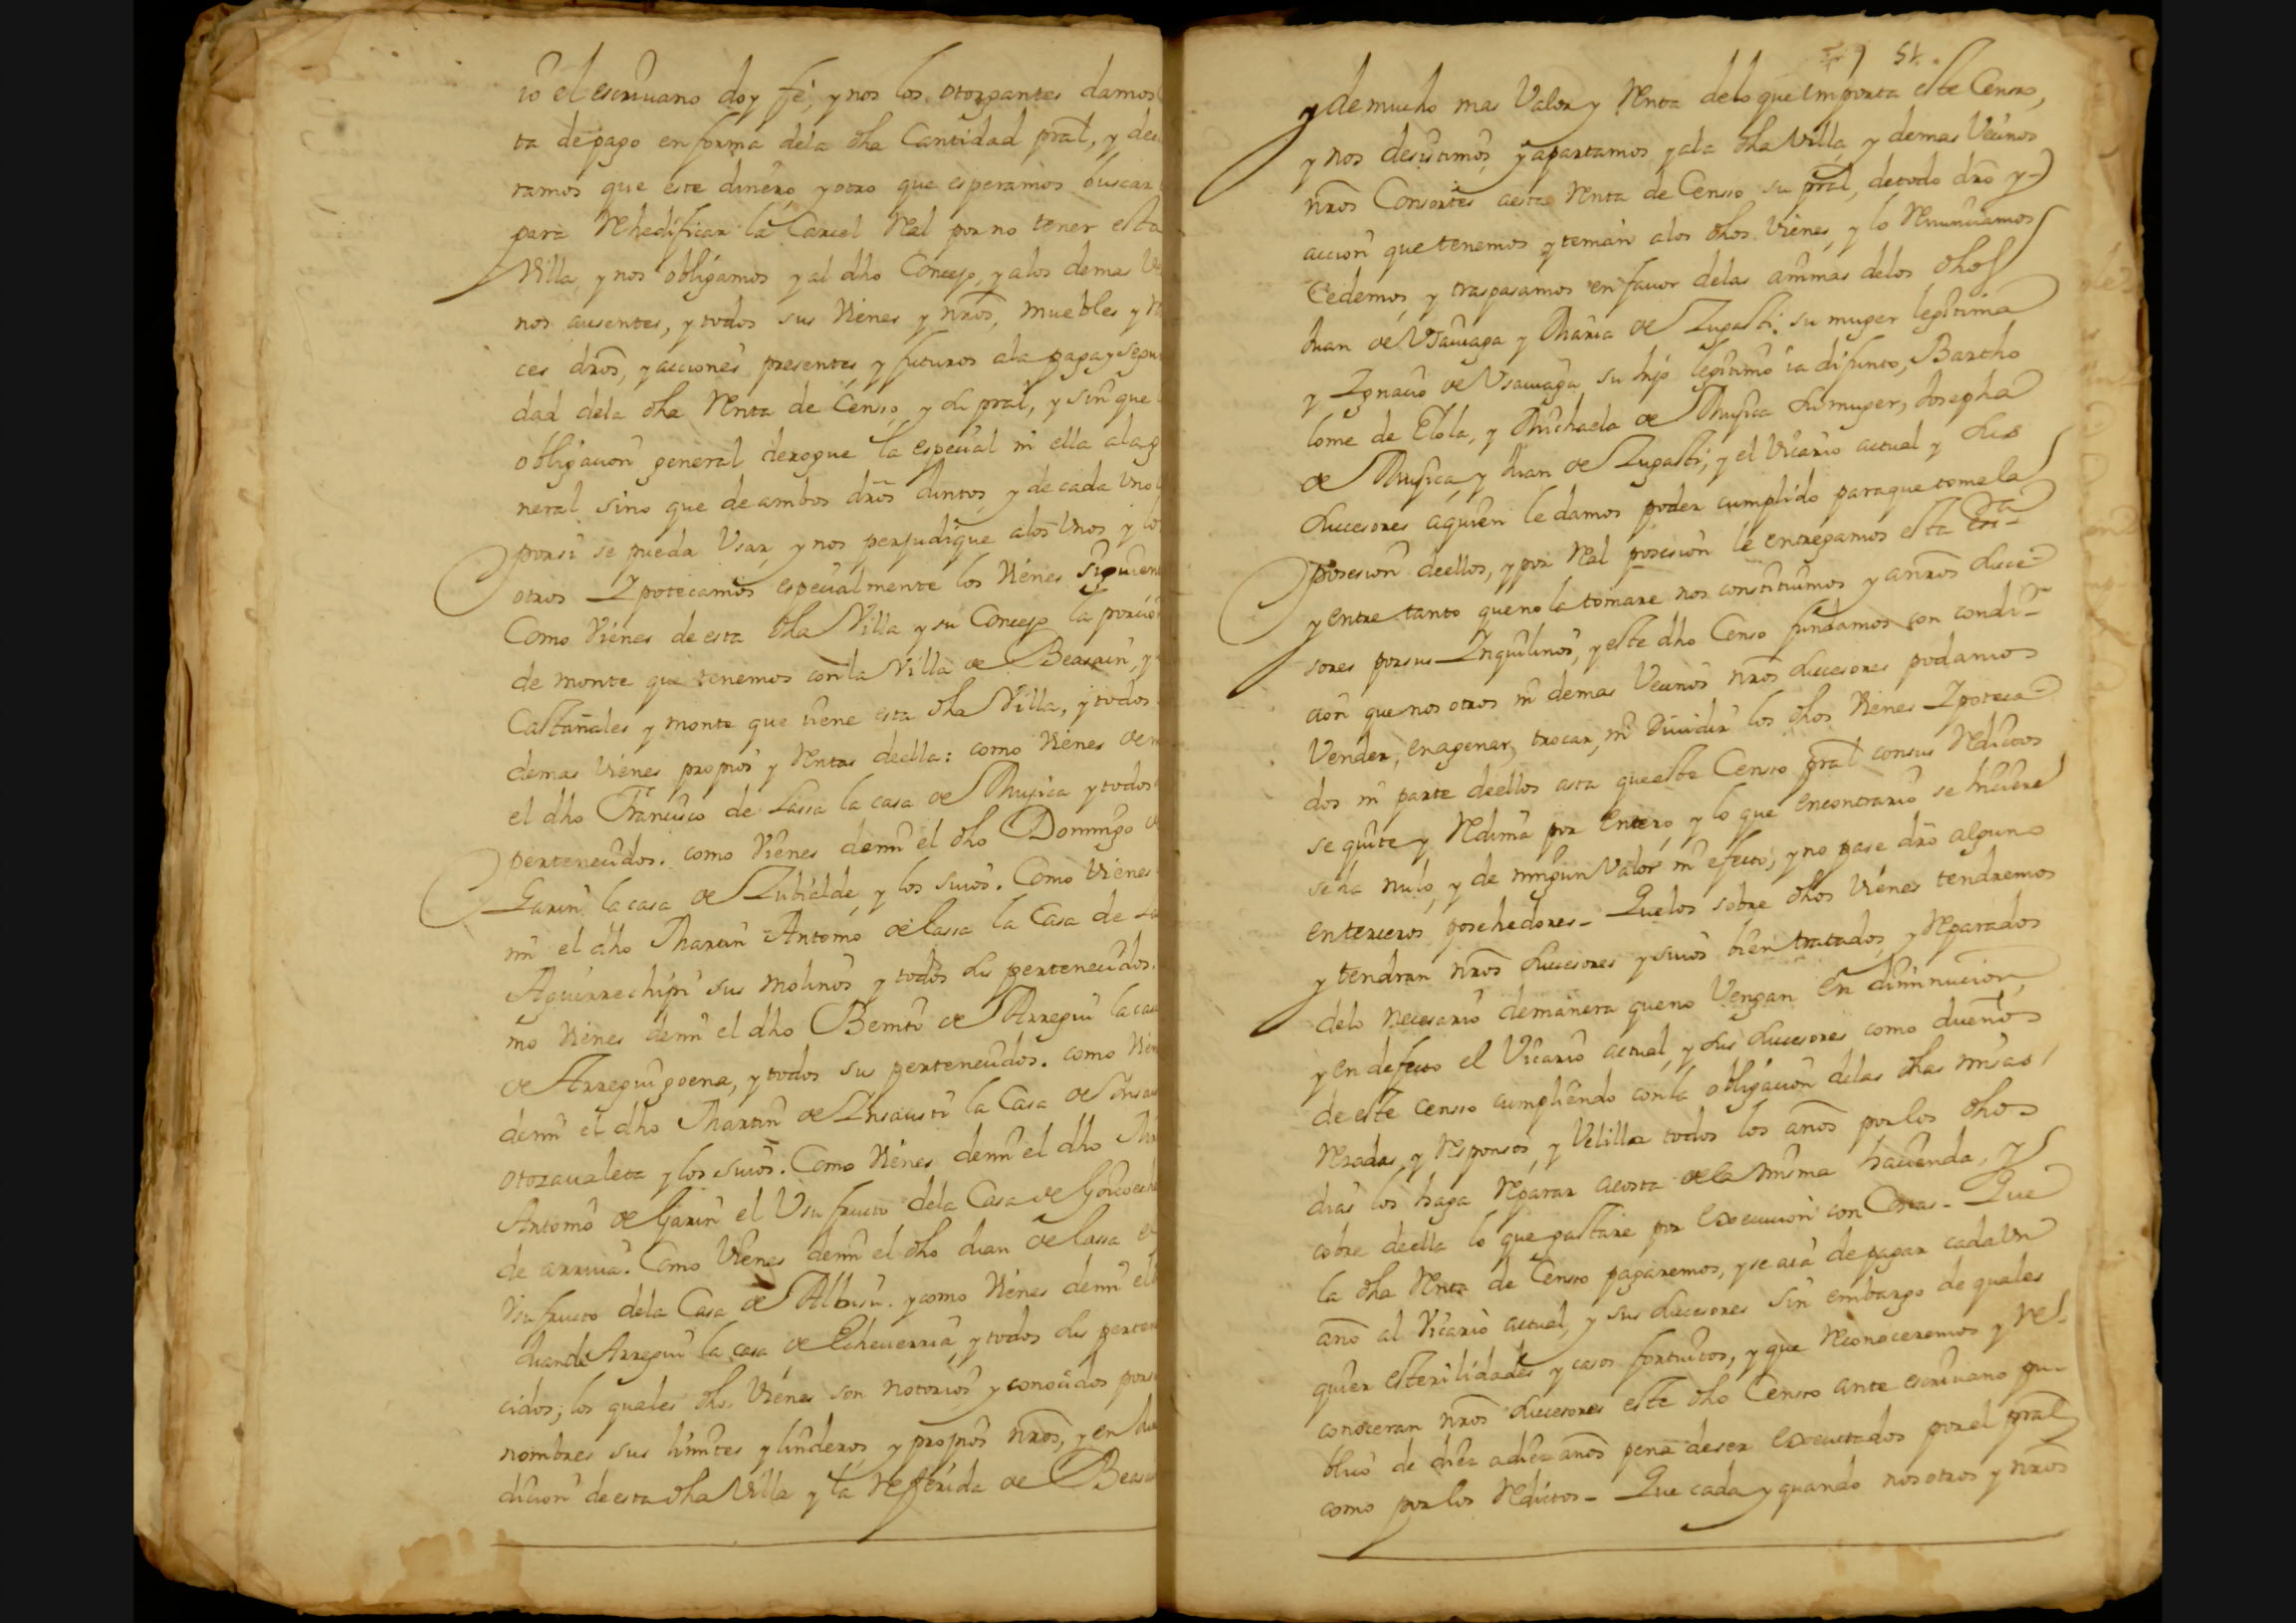 io el escriuano doy fé, y nos los otorgantes damos
ta de pago en forma dela dha Cantidad pral, y de
ramos que este dinero, y otro que esperamos buscar
para Rhedificar la Carcel Real por no tener esta
Villa, y nos obligamos y al dho Concejo, y alos demas
nos ausentes, y todos sus Vienes y nros, muebles y
ces dros, y acciones presentes y futuros ala paga y segu
dad dela dha Renta de Censo, y su pral, y sin que
obligacion general derogue la especial ni ella ala g
neral sino que de ambos dros Juntos, y de cada Uno
porsi se pueda Usar, y nos perjudique alos Unos y lo
otros Ipotecamos especialmente los Vienes siguien
Como Vienes de esta dha Villa y su Concejo la porció
de monte que tenemos con la Villa de Beasain, y
Castañales y monte que tiene esta dha Villa, y todos
demas Vienes propios y Rentas deella: como Vienes de m
el dho Francisco de Lassa la casa de Mujica y todos
pertenecidos. como Vienes demi el dho Domingo
Garin la casa de Zubialde, y los suios. Como Vienes
mi el dho Martin Antonio de Lassa la Casa de
Aguirrechipi sus molinos y todos sus pertenecidos.
mo Vienes demi el dho Benito de Arregui la ca
de Arreguigoena, y todos su pertenecidos. como Vie
demi el dho Martin de Insausti la Casa de Insau
otorzaualeta y los suios. Como Vienes demi el dho
Antonio de Garin el Usu fructo dela Casa de Goicoeche
de arriua. Como Vienes demi el dho Juan de Lassa
Vsu fructo dela Casa de Albisu. y como Vienes demi el
Juan de Arregui la casa de Echeuerria, y todos sus perten
cidos; los quales dhos Vienes son notorios y conocidos por
nombres sus limites y linderos, y propios nros, y en Ju
dicion de esta dha Villa y la referida de Beasa
51.
y de mucho mas Valor y Renta delo que importa este Censo,
y nos desistimos, y apartamos y ala dha Villa y demas Vecinos
nros Consortes aesta Renta de Censo su pral, de todo dro y
accion que tenemos y ternan alos dhos Vienes, y lo Renunciamos
Cedemos, y traspasamos en fauor delas animas delos dhos
Juan de Vsauiaga y Maria de Zugasti su muger legitima
y Ignacio de Vsauiaga su hijo legitimo ia difunto, Bartho
lome de Elola, y Michaela de Mujica su muger, Josepha
de Mujica y Juan de Zugasti, y el Vicario actual y sus
successores aquien le damos poder cumplido paraque tome la
posesion deellos, y por Real posesion le entregamos esta essra
y entre tanto que no la tomare nos constituimos y anros suce
sores por sus Inquilinos, y este dho Censo fundamos con condi
cion que nosotros ni demas Vecinos nros successores podamos
Vender, enagenar, trocar, ni diuidir los dhos Vienes Ipoteca
dos ni parte deellos asta que este Censo pral con sus Reditos
se quite y Redima por Entero, y lo que encontrario se hiciere
sea nulo, y de ningun Valor ni efecto, y no pase dro alguno
en terceros posehedores- Quelos sobre dhos Vienes tendremos
y tendran nros successores y suios bien tratados, y Reparados
delo necesario demanera que no Vengan En diminucion,
y en defecto el Vicario actual, y sus successores como dueños
de este censo cumpliendo con la obligacion delas dhas misas,
Rezadas, y Responsos, y Velillar todos los años por los dhos
dias los haga Reparar acosta dela misma hacienda, y
cobre deella lo que gastare por execucion con Costas- Que
la dha Renta de Censo pagaremos, y se aia de pagar cada Un
año al Vicario actual, y sus successores sin embargo de quales
quier esterilidades y casos fortuitos, y que Reconoceremos y Re
conoceran nros successores este dho Censo ante escriuano pu
blico de diez adiez años pena deser executados por el pral
como por los Reditos- Que cada y quando nosotros y nros